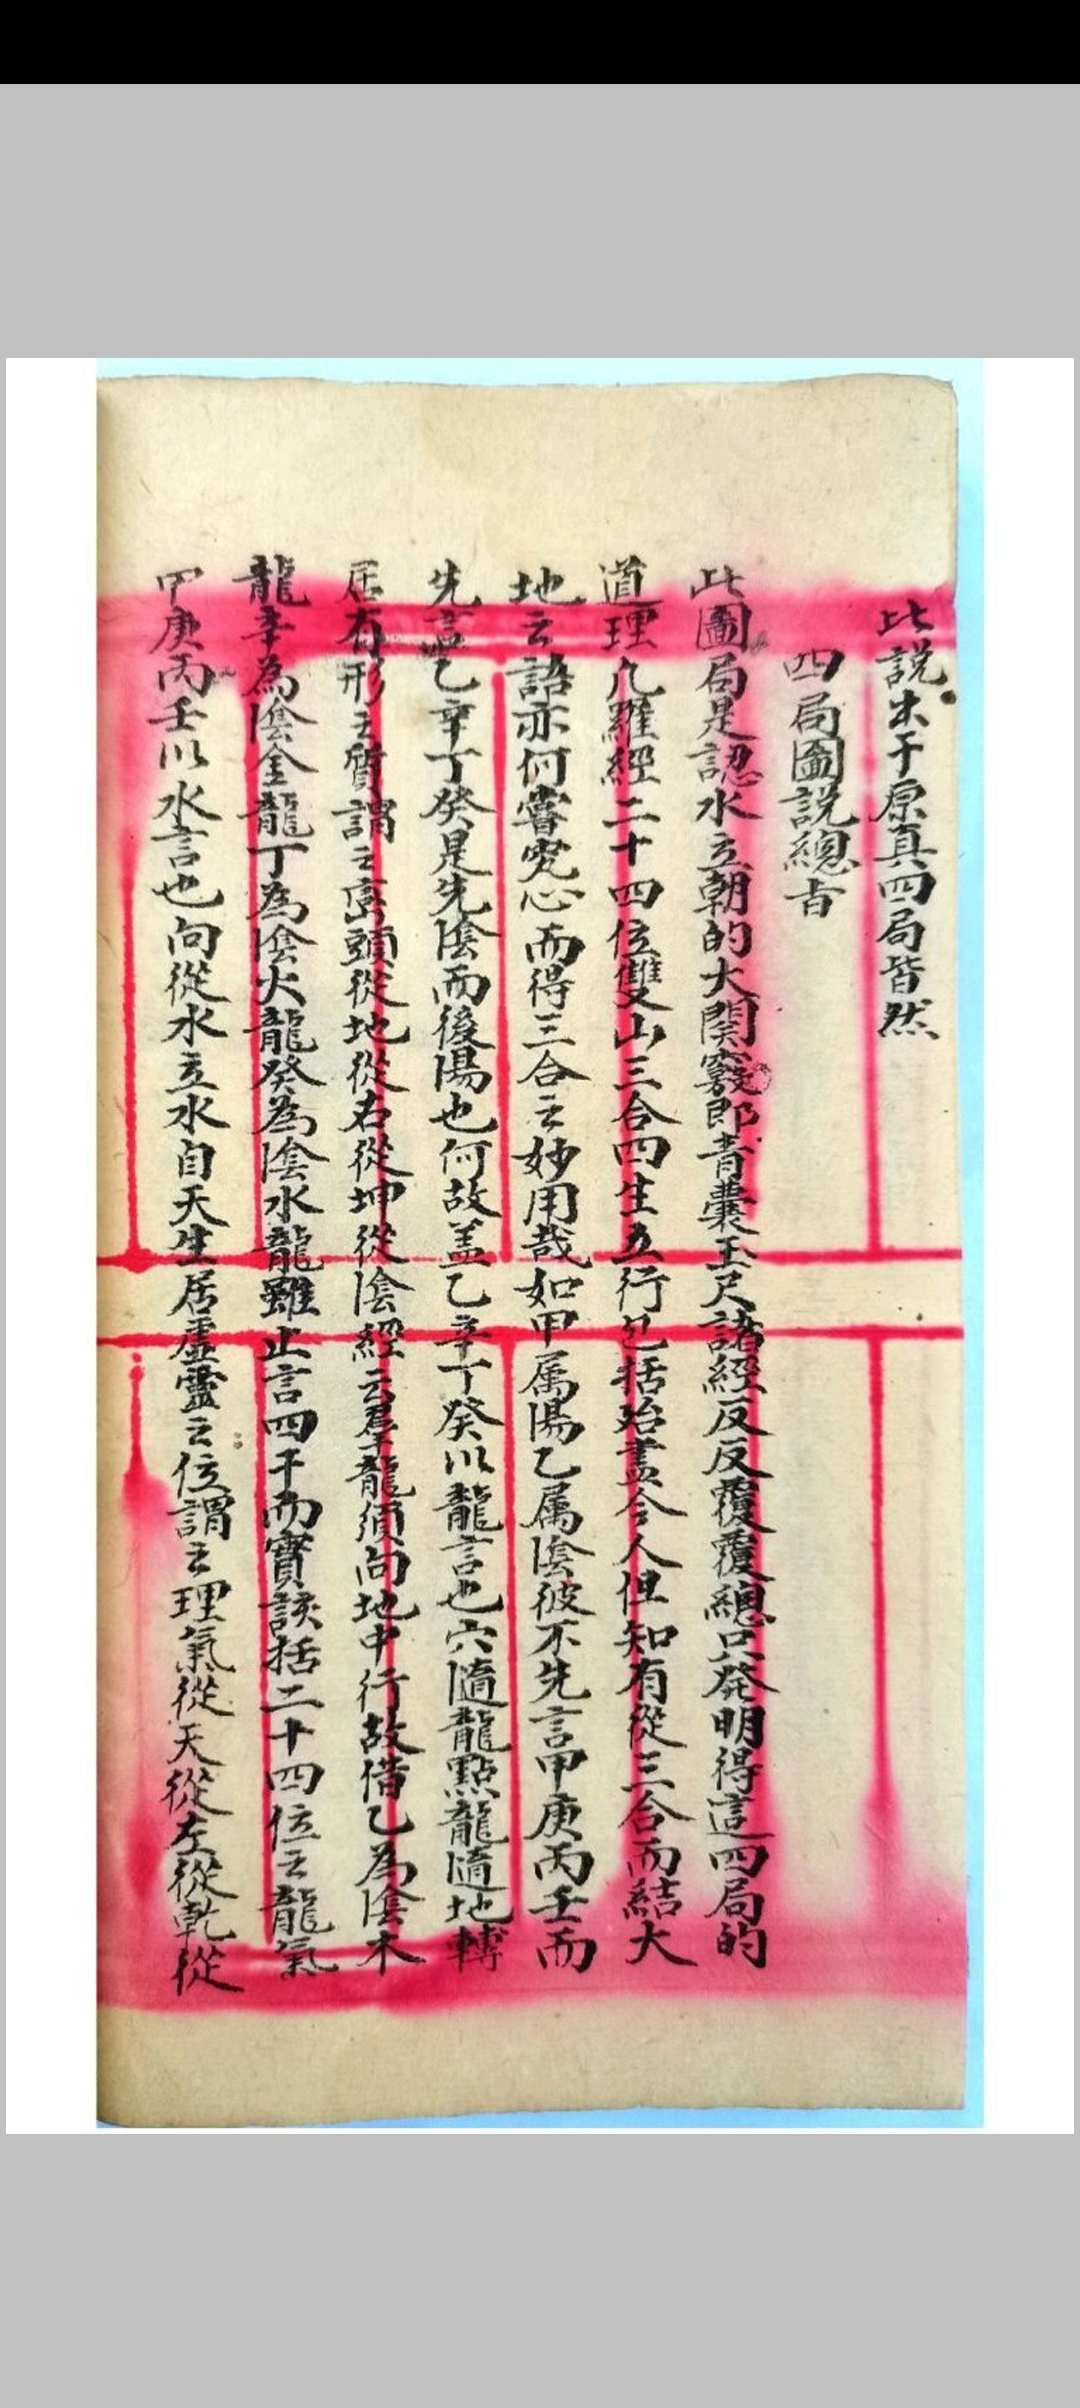 此説出于原真四局皆然
四局圖説總旨
此圖局是認水立朝的大関竅即青囊玉尺諸經反反覆覆總只発明得這四局的
道理凢羅經二十四位雙山三合四生五行包括始盡今人但知有從三合而結大
地之語亦何嘗究心而得三合之妙用哉如甲属陽乙属陰彼不先言甲庚丙壬而
先言乙辛丁癸是先陰而後陽也何故盖乙辛丁癸以龍言也穴隨龍點龍隨地轉
居有形之質謂之巒頭從地從右從坤從陰經云羣龍須向地中行故借乙為陰木
龍辛為陰金龍丁為陰火龍癸為陰水龍雖止言四干而實該括二十四位之龍氣
甲庚丙壬以水言也向從水立水自天生居虛靈之位謂之理氣從天從左從乾從